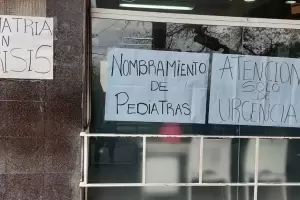 IATRIA
EN
CRISIS
NOMBRAMIENTO
DE
PEDIATRAS
ATENCION
SOLO
DE
URGENCIA